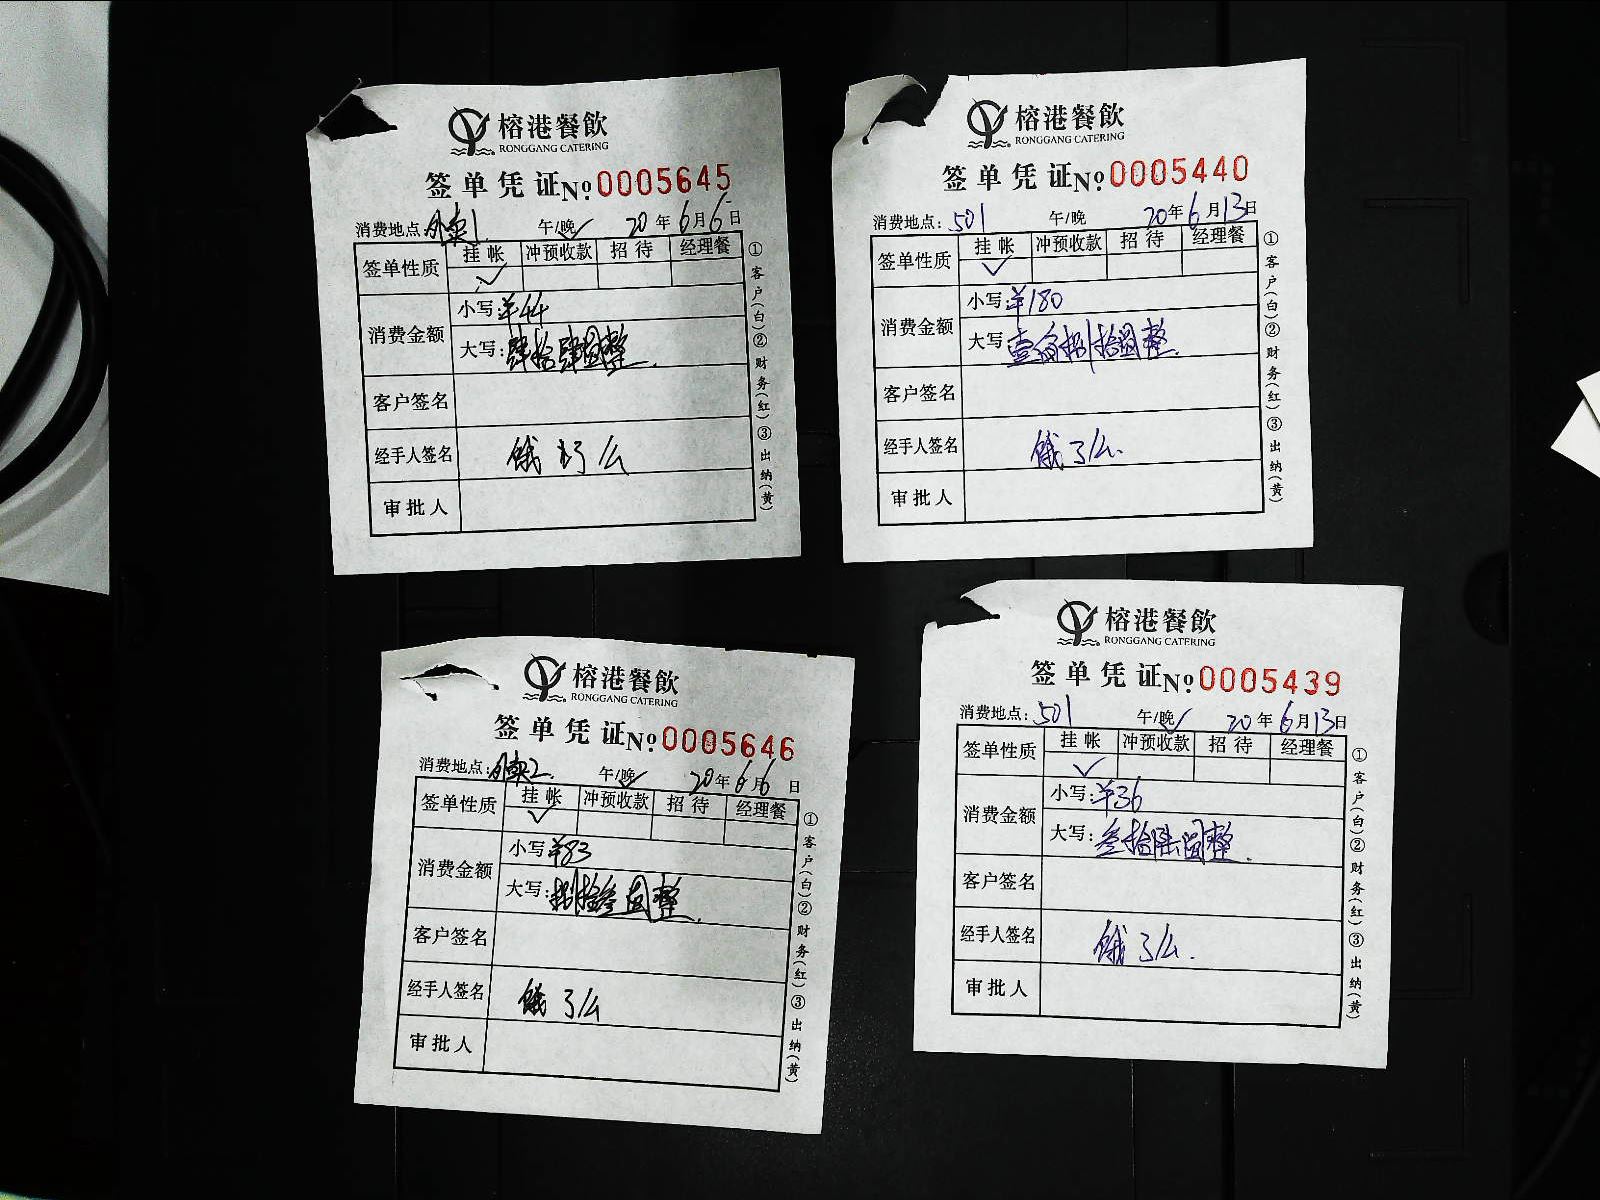 榕港餐飲
RONGGANG CATERING
签单凭证 No 0005645
消费地点:外卖1 午/晚✓ 20年6月6日
签单性质 挂帐 冲预收款 招待 经理餐
✓
消费金额 小写:羊44
大写:肆拾肆圆整.
客户签名
经手人签名 饿了么
审批人
①客户(白)②财务(红)③出纳(黄)
榕港餐飲
RONGGANG CATERING
签单凭证 No 0005440
消费地点:501 午/晚 20年6月13日
签单性质 挂帐 冲预收款 招待 经理餐
✓
消费金额 小写:羊180
大写:壹佰捌拾圆整.
客户签名
经手人签名 饿了么.
审批人
①客户(白)②财务(红)③出纳(黄)
榕港餐飲
RONGGANG CATERING
签单凭证 No 0005646
消费地点:外卖2. 午/晚✓ 20年6月6日
签单性质 挂帐 冲预收款 招待 经理餐
✓
消费金额 小写:羊83
大写:捌拾叁圆整.
客户签名
经手人签名 饿了么
审批人
①客户(白)②财务(红)③出纳(黄)
榕港餐飲
RONGGANG CATERING
签单凭证 No 0005439
消费地点:501 午/晚✓ 20年6月13日
签单性质 挂帐 冲预收款 招待 经理餐
✓
消费金额 小写:羊36
大写:叁拾陆圆整.
客户签名
经手人签名 饿了么.
审批人
①客户(白)②财务(红)③出纳(黄)